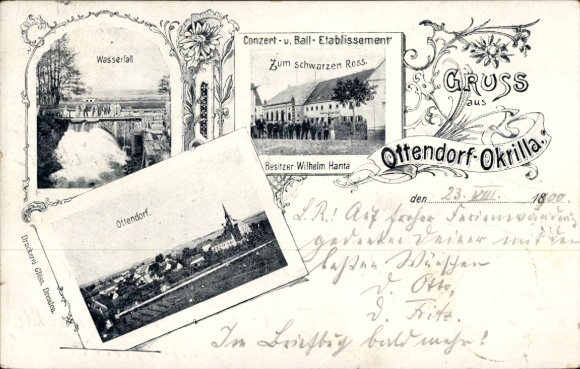 Wasserfall
Conzert- u. Ball- Etablissement
Zum schwarzen Ross.
Besitzer Wilhelm Hanta
GRUSS
aus
Ottendorf-Okrilla.
den 23. VIII. 1900.
Ottendorf.
Druckerei Glöss, Dresden.
L. R.! Auf froher Ferienwanderung
gedenken Deiner mit den
besten Grüßen
D. Otto,
D. Fritz.
Im Briefbug bald mehr!